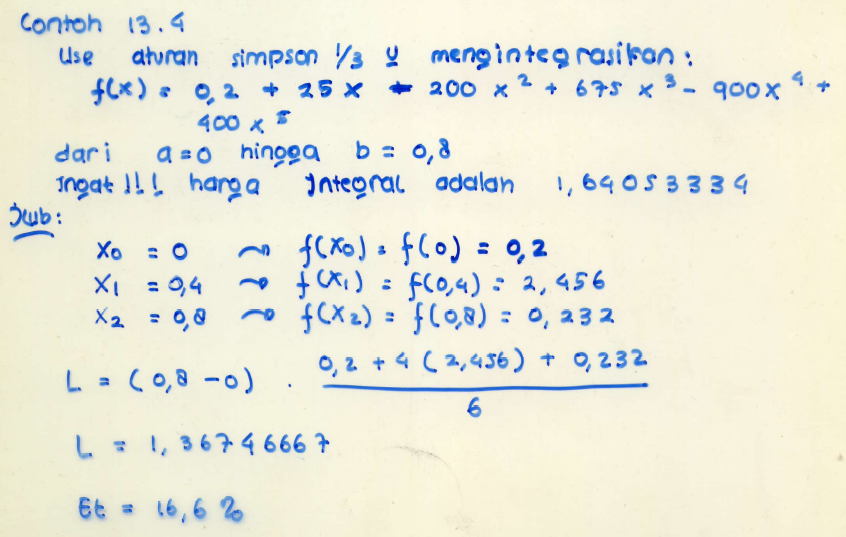 Contoh 13.4
Use aturan simpson 1/3 u mengintegrasikan:
f(x) = 0,2 + 25 x - 200 x² + 675 x³ - 900x⁴ +
400 x⁵
dari a=0 hingga b = 0,8
Ingat!!! harga Integral adalah 1,64053334
Jwb:
X₀ = 0 ~> f(X₀) = f(0) = 0,2
X₁ = 0,4 ~> f(X₁) = f(0,4) = 2,456
X₂ = 0,8 ~> f(X₂) = f(0,8) = 0,232
L = (0,8 - 0) . 0,2 + 4 (2,456) + 0,232
6
L = 1,36746667
Et = 16,6 %